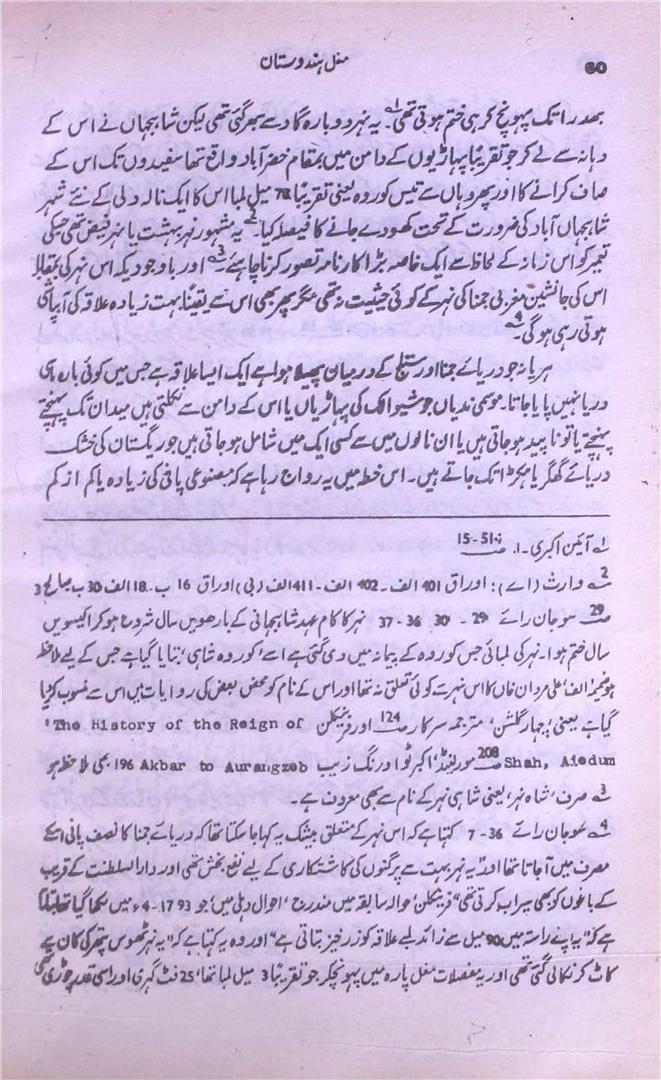 مغل ہندوستان
60
بھدرا تک پہونچ کر ہی ختم ہوتی تھی۔ یہ نہر دوبارہ گاد سے بھر گئی تھی لیکن شاہجہاں نے اس کے
دہانہ سے لے کر جو تقریباً پہاڑیوں کے دامن میں بمقام خضرآباد واقع تھا سفیدوں تک اس کے
صاف کرانے کا اور پھر وہاں سے تیس کوروہ یعنی تقریباً 78 میل لمبا اس کا ایک نالہ دلی کے نئے شہر
شاہجہاں آباد کی ضرورت کے تحت کھودے جانے کا فیصلہ کیا۔2 یہ مشہور نہر بہشت یا نہر فیض تھی جسکی
تعمیر کو اس زمانہ کے لحاظ سے ایک خاصہ بڑا کارنامہ تصور کرنا چاہئے۔3 اور باوجودیکہ اس نہر کی بمقابلہ
اس کی جانشین مغربی جمنا کی نہر کے کوئی حیثیت نہ تھی مگر پھر بھی اس سے یقیناً بہت زیادہ علاقہ کی آبپاشی
ہوتی رہی ہوگی۔4
ہریانہ جو دریائے جمنا اور ستلج کے درمیان پھیلا ہوا ہے ایک ایسا علاقہ ہے جس میں کوئی بارہ ماہی
دریا نہیں پایا جاتا۔ موسمی ندیاں جو شیوالک کی پہاڑیاں یا اس کے دامن سے نکلتی ہیں میدان تک پہنچتے
پہنچتے یا تو ناپید ہو جاتی ہیں یا ان نالوں میں سے کسی ایک میں شامل ہو جاتی ہیں جو ریگستان کی خشک
دریائے گھگر یا ہکڑا تک جاتے ہیں۔ اس خطہ میں یہ رواج رہا ہے کہ مصنوعی پانی کی زیادہ یا کم از کم
1 آئین اکبری۔ا۔ ص 15-514
2 وارث (اے): اوراق 401 الف۔ 402 الف۔ 411 الف (بی) اوراق 16 ب۔ 18 الف 30 ب صالح 3
ص 29 سوجان رائے 29، 30، 36-37 نہر کا کام عہد شاہجہانی کے بارھویں سال شروع ہو کر اکیسویں
سال ختم ہوا۔ نہر کی لمبائی جس کوروہ کے پیمانہ میں دی گئی ہے اسے 'کوروہ شاہی' بتایا گیا ہے جس کے لیے ملاحظہ
ہو ضمیمہ الف، علی مردان خاں کا اس نہر سے کوئی تعلق نہ تھا اور اس کے نام کو محض بعض کی روایات میں اس سے منسوب کر دیا
گیا ہے یعنی، چہار گلشن، مترجمہ سرکار ص 124 اور فرینکلن The History of the Reign of
Shah, Aiedum ص 208 مورلینڈ، اکبر ٹو اورنگ زیب Akbar to Aurangzeb 196 بھی ملاحظہ ہو
3 صرف، شاہ نہر، یعنی شاہی نہر کے نام سے بھی معروف ہے۔
4 سوجان رائے 36-7 کہتا ہے کہ اس نہر کے متعلق بیشک یہ کہا جا سکتا تھا کہ دریائے جمنا کا نصف پانی اسکے
مصرف میں آ جاتا تھا اور "یہ نہر بہت سے پرگنوں کی کاشتکاری کے لیے نفع بخش تھی اور دارالسلطنت کے قریب
کے باغوں کو بھی سیراب کرتی تھی" فرینکلن، حوالہ سابقہ میں مندرج 'احوال دہلی میں، جو 1793-4ء میں لکھا گیا تھا بتلاتا
ہے کہ "یہ اپنے راستہ میں 90 میل سے زائد لمبے علاقہ کو زرخیز بناتی ہے" اور وہ یہ کہتا ہے کہ "یہ نہر ٹھوس پتھر کی کان سے
کاٹ کر نکالی گئی تھی اور یہ مفصلات مغل پارہ میں پہونچکر جو تقریباً 3 میل لمبا تھا، 25 فٹ گہری اور اسی قدر چوڑی تھی